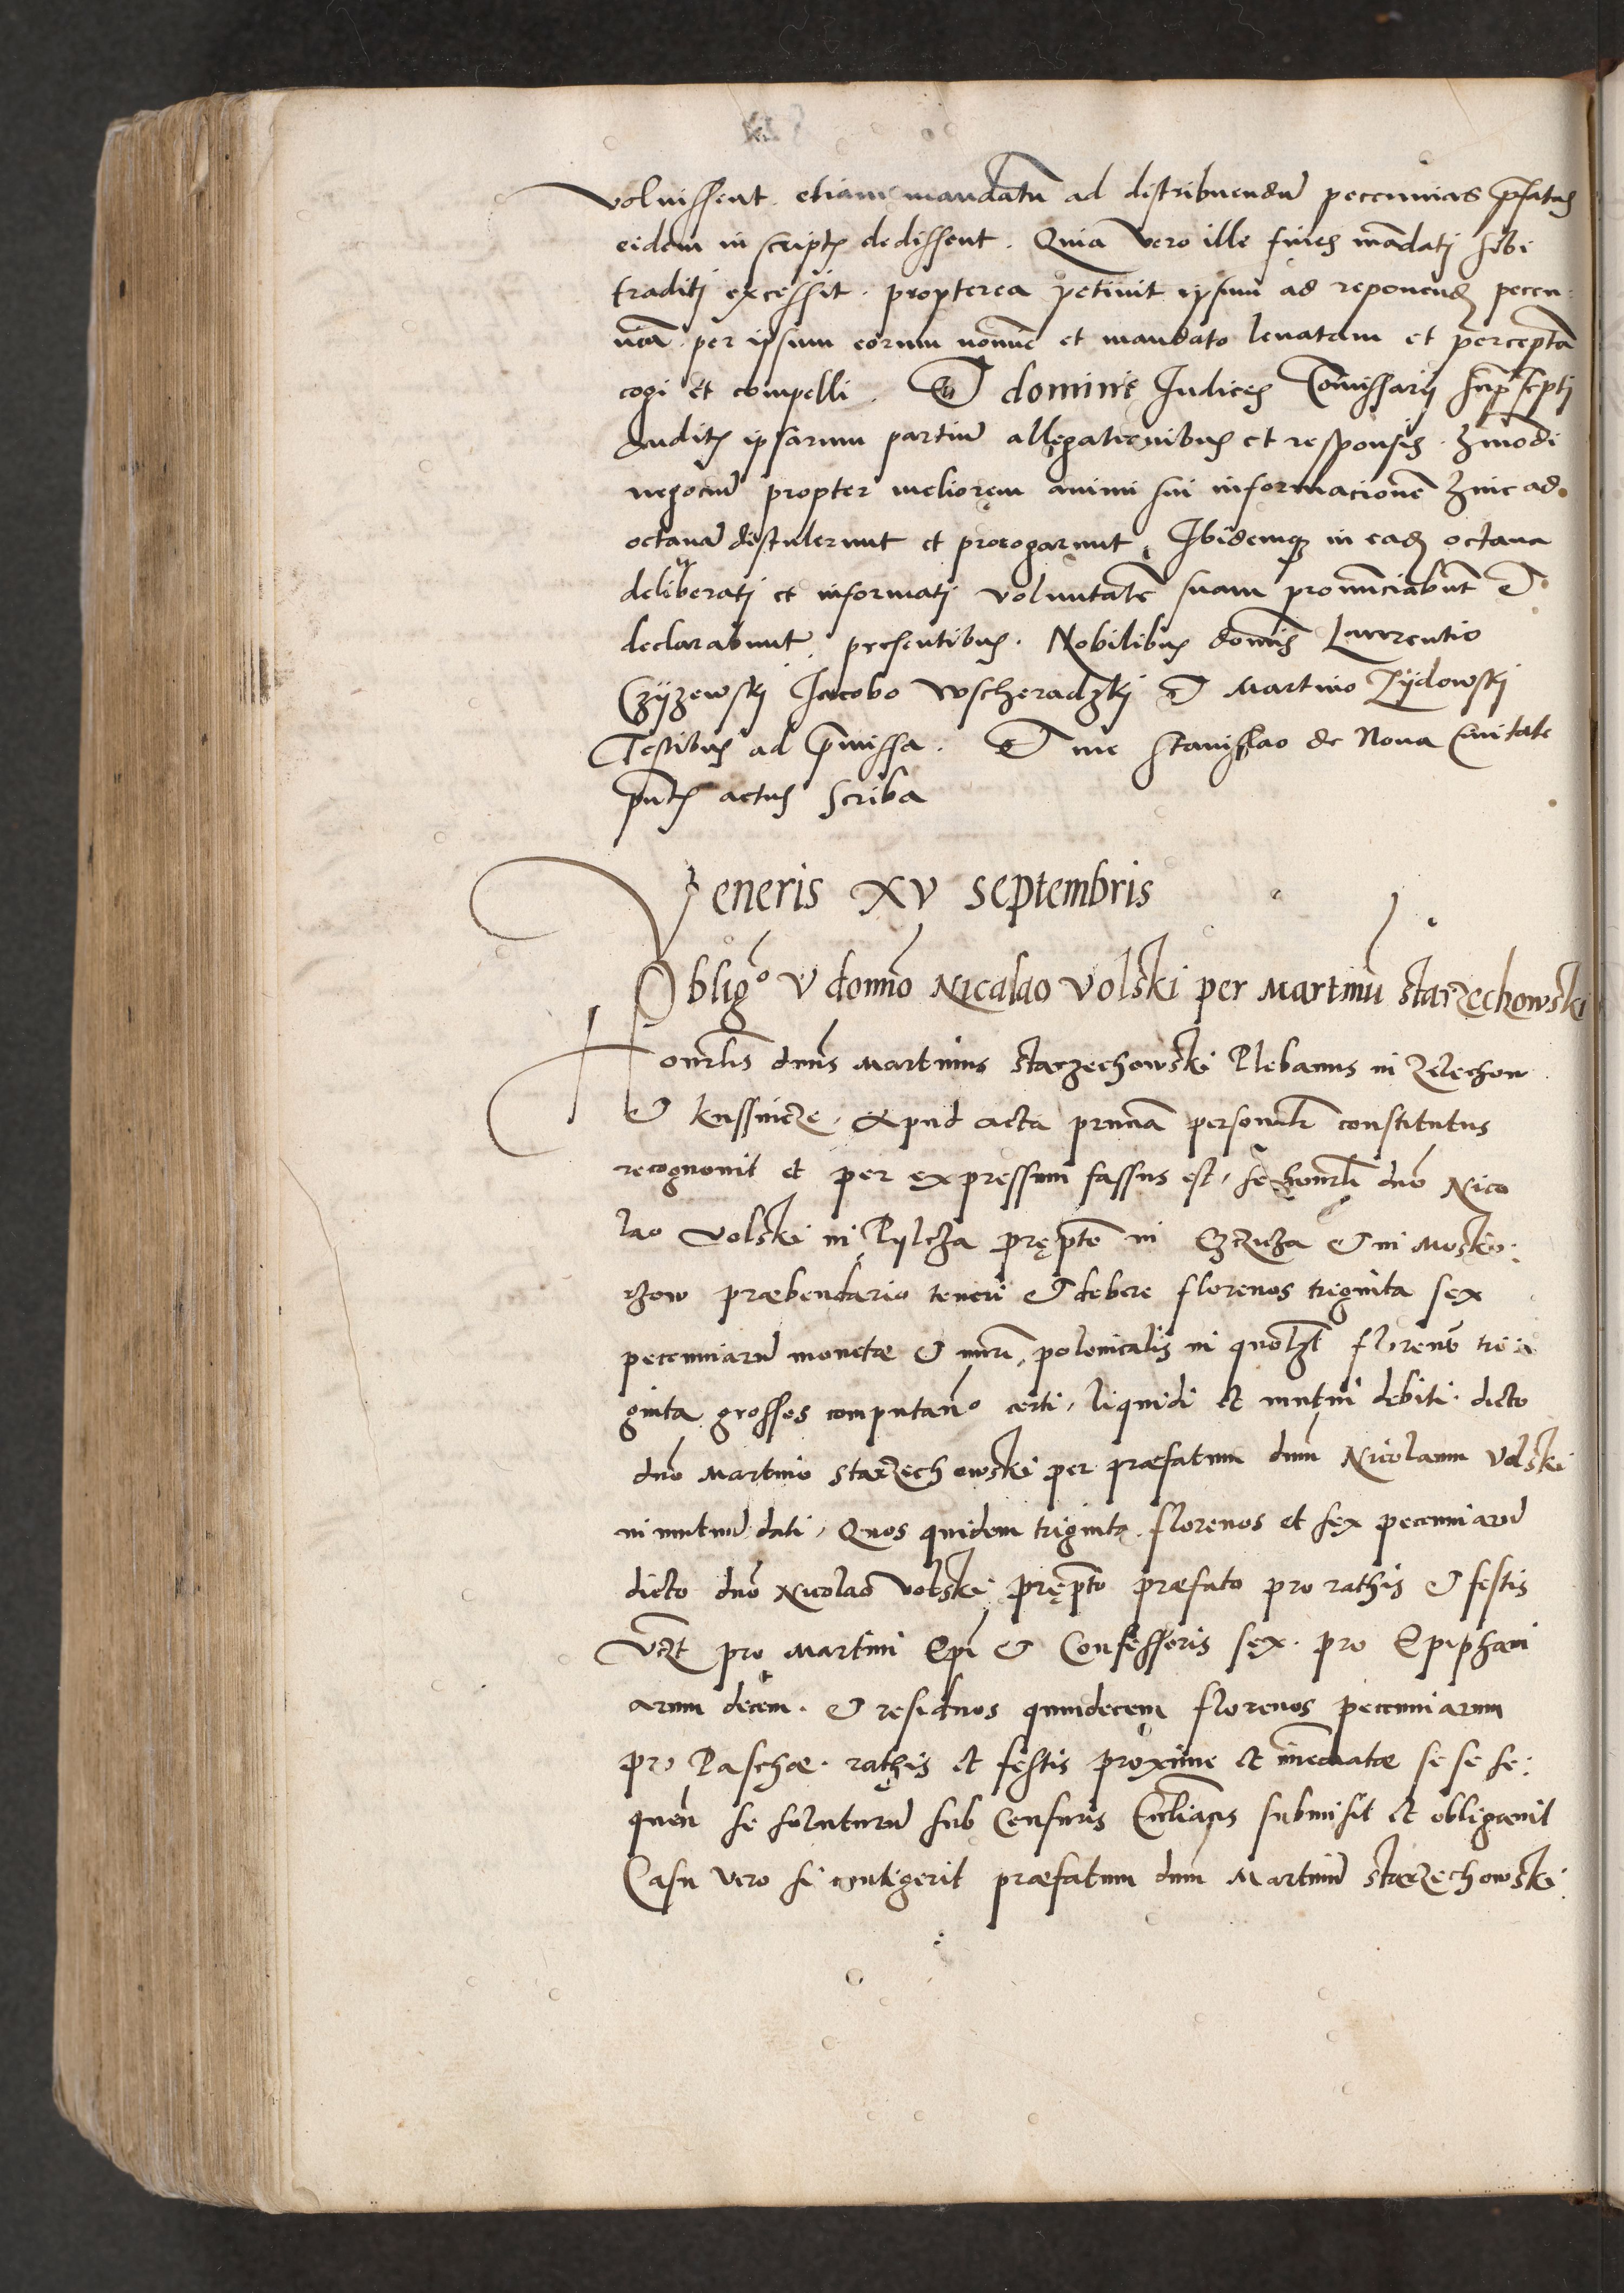 voluissent. etiam mandatū ad distribuendū peccunias p̄fatus
eidem in scriptis dedissent. Quia vero ille fines mādati sibi
traditi excessit. propterea petiuit ipsum ad reponendū peccu-
niā per ipsum eorum nomīe et mandato leuatam et perceptā
cogi et compelli. Et domini Iudices Com̄issarij supˢcripti
Auditis ipsarum partiū allegationibus et responsis. hmōdi
negociū propter meliorem animi sui informacionē hinc ad
octauā distulerunt et prorogarunt. Ibidemqꝫ in eadē octaua
deliberati et informati voluntatē suam pronūciabūt et
declarabunt. presentibus. Nobilibus domīs Laurentio
Czÿzewskj Jacobo Wscheradzkj et Martino Zÿdowskj
Testibus ad p̄missa. Et me Stanislao de Noua Ciuitate
pn̄tis actus scriba
Veneris XV Septembris
Obligº v domīo Nicalao Volski per Martinū Starzechowski
Honorlis dn̄us Martinus Starzechowski Plebanus in Zelechow
et kussnicze. Apud acta pn̄tia personalr̄ constitutus
recognouit et per expressum fassus est, se honorli dn̄o Nico
lao Volski in Pylcza pręp̄to in et in Mosko-
rzow præbendario teneri et debere florenos triginta sex
peccuniarū monetæ et nūeri polonicalis in quolꝫt florenū tri
ginta grossos computanº certi, liquidi et mutui debiti. dicto
dn̄o Martino Starzechowski per præfatum dn̄m Nicolaum Volski
in mutuū dati, Quos quidem triginta florenos et sex peccuniarū
dicto dn̄o Nicolao Volski pręp̄to præfato pro rathis et festis
vꝫt pro Martini Ep̄i et Confessoris sex. pro Epiphani
arum decem. et residuos quindecem florenos peccuniarum
pro Paschæ. rathis et festis proxime et im̄ediatæ se se se-
quen̄ se soluturū sub Censuris Eccl̄iacis submisit et obligauit
Casu vero si contigerit præfatum dn̄m Martinū Starzechowski